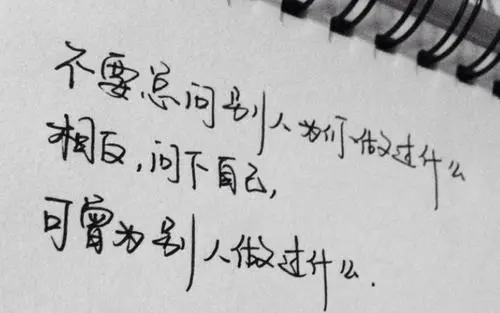 不要总问别人为你做过什么
相反，问下自己，
可曾为别人做过什么.